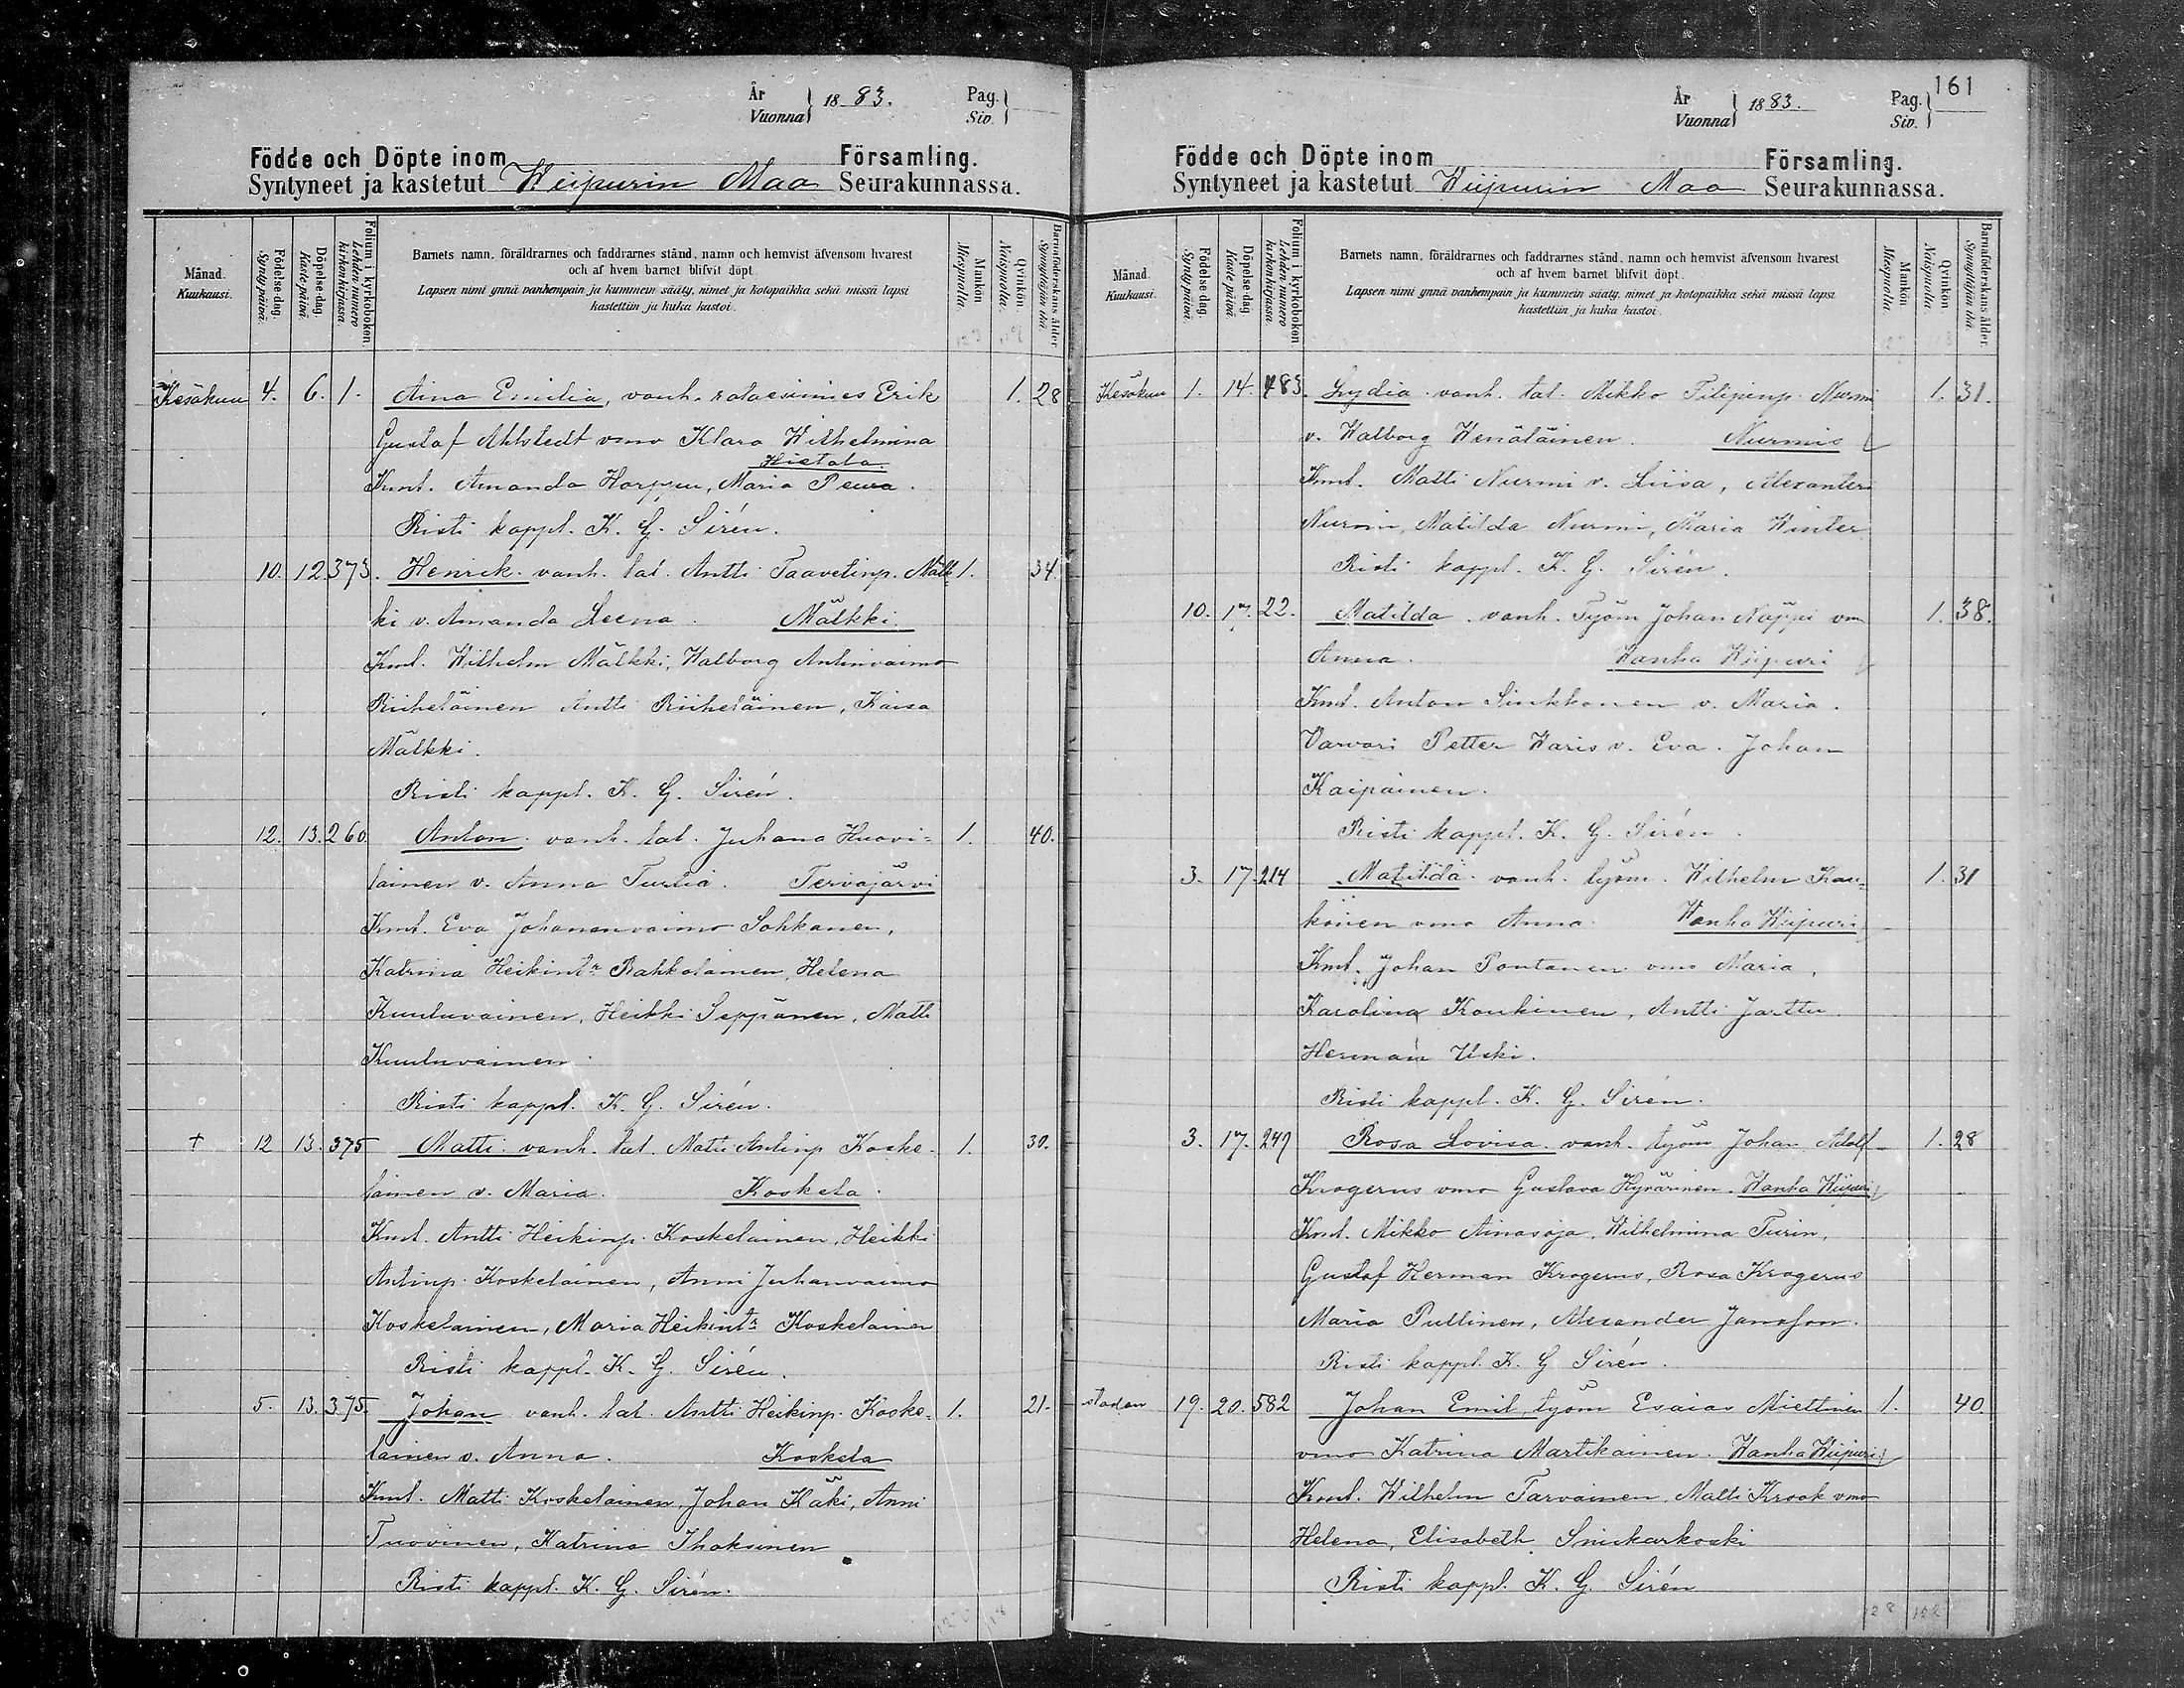 År
Vuonna } 1883.
Pag.
Siv. }
Födde och Döpte inom Församling.
Syntyneet ja kastetut Wiipurin Maa Seurakunnassa.
Månad.
Kuukausi.
Födelse-dag.
Synty-päivä.
Döpelse-dag.
Kaste-päivä.
Folium i kyrkoboken.
Lehden numero kirkonkirjassa.
Barnets namn, föräldrarnes och faddrarnes stånd, namn och hemvist äfvensom hvarest
och af hvem barnet blifvit döpt.
Lapsen nimi ynnä vanhempain ja kummein sääty, nimet ja kotopaikka sekä missä lapsi
kastettiin ja kuka kastoi.
Mankön.
Miespuolta.
Qvinkön.
Naispuolta.
Barnaföderskans ålder.
Synnyttäjän ikä.
Kesäkuu 4. 6. 1. Aina Emilia, vanh. Erik 1. 28
Gustaf Ahlstedt vmo Klara Wilhelmina
Hietala.
Kmt. Amanda Harppu, Maria Peura.
Risti kappl. K. G. Sirén.
10. 12 373. Henrik. vanh. tal. Antti Taavetinp. Mälk 1. 34.
ki v. Amanda Leena. Mälkki.
Kmt. Wilhelm Mälkki, Walborg Antinvaimo
Riiheläinen Antti Riiheläinen, Kaisa
Mälkki.
Risti kappl. K. G. Sirén.
12. 13. 260. Anton. vanh. tal. Juhana Huovi- 1. 40.
lainen v. Anna Turkia. Tervajärvi
Kmt. Eva Johananvaimo Sohkanen,
Katrina Heikintr Rahkolainen, Helena
Kuuluvainen, Heikki Seppänen, Matti
Kuuluvainen.
Risti kappl. K. G. Sirén.
+ 12 13. 375 Matti. vanh. tal. Matti Antinp Koske- 1. 30.
lainen v. Maria. Koskela.
Kmt. Antti Heikinp. Koskelainen, Heikki
Antinp. Koskelainen, Anni Juhanvaimo
Koskelainen, Maria Heikintr Koskelainen
Risti kappl. K. G. Sirén.
5. 13. 375. Johan vanh. tal. Antti Heikinp. Koske- 1. 21.
lainen v. Anna. Koskela
Kmt. Matti Koskelainen, Johan Käki, Anni
Tuovinen, Katrina Ihaksinen
Risti kappl. K. G. Sirén.
161
År
Vuonna } 1883.
Pag.
Siv. }
Födde och Döpte inom Församling.
Syntyneet ja kastetut Wiipurin Maa Seurakunnassa.
Månad.
Kuukausi.
Födelse-dag.
Synty-päivä.
Döpelse-dag.
Kaste-päivä.
Folium i kyrkoboken.
Lehden numero kirkonkirjassa.
Barnets namn, föräldrarnes och faddrarnes stånd, namn och hemvist äfvensom hvarest
och af hvem barnet blifvit döpt.
Lapsen nimi ynnä vanhempain ja kummein sääty, nimet ja kotopaikka sekä missä lapsi
kastettiin ja kuka kastoi.
Mankön.
Miespuolta.
Qvinkön.
Naispuolta.
Barnaföderskans ålder.
Synnyttäjän ikä.
Kesäkuu 1. 14. 483. Lydia. vanh. tal. Mikko Filipinp. Nurmi 1. 31.
v. Walborg Wenäläinen. Nurmis
Kmt. Matti Nurmi v. Liisa, Alexanteri
Nurmi, Matilda Nurmi, Maria Winter
Risti kappl. K. G. Sirén.
10. 17. 22. Matilda. vanh. Työm Johan Näppi vm 1. 38.
Anna. Wanha Wiipuri
Kmt. Anton Sinkkonen v. Maria.
Varvari Petter Waris v. Eva. Johan
Kaipainen.
Risti kappl. K. G. Sirén.
3. 17. 214 Matilda. vanh. työm. Wilhelm Kau- 1. 31
konen vmo Anna. Wanha Wiipuri
Kmt. Johan Pontanen vmo Maria,
Karolina Koukinen, Antti Jarttu
Herman Uski.
Risti kappl. K. G. Sirén.
3. 17. 249 Rosa Lovisa. vanh. työm Johan Adolf 1. 28
Krogerus vmo Gustava Hyvärinen. Wanha Wiipuri
Kmt. Mikko Ainasoja, Wilhelmina Turin,
Gustaf Herman Krogerus, Rosa Krogerus
Maria Pullinen, Alexander Jansson.
Risti kappl. K. G. Sirén.
staden 19. 20. 582 Johan Emil, työm Esaias Miettinen 1. 40.
vmo Katrina Martikainen. Wanha Wiipuri
Kmt. Wilhelm Tarvainen, Matti Krook vmo
Helena, Elisabeth Snickarkoski
Risti kappl. K. G. Sirén